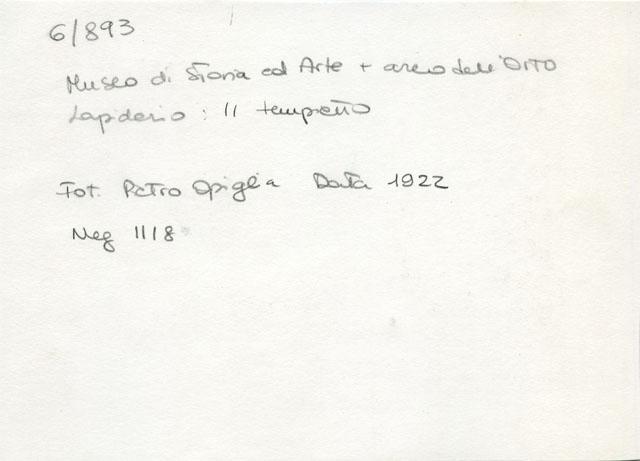 6/893
Museo di Storia ed Arte + area dell'ORTO
Lapidario : Il tempietto
Fot. Pietro Opiglia Data 1922
Neg 1118